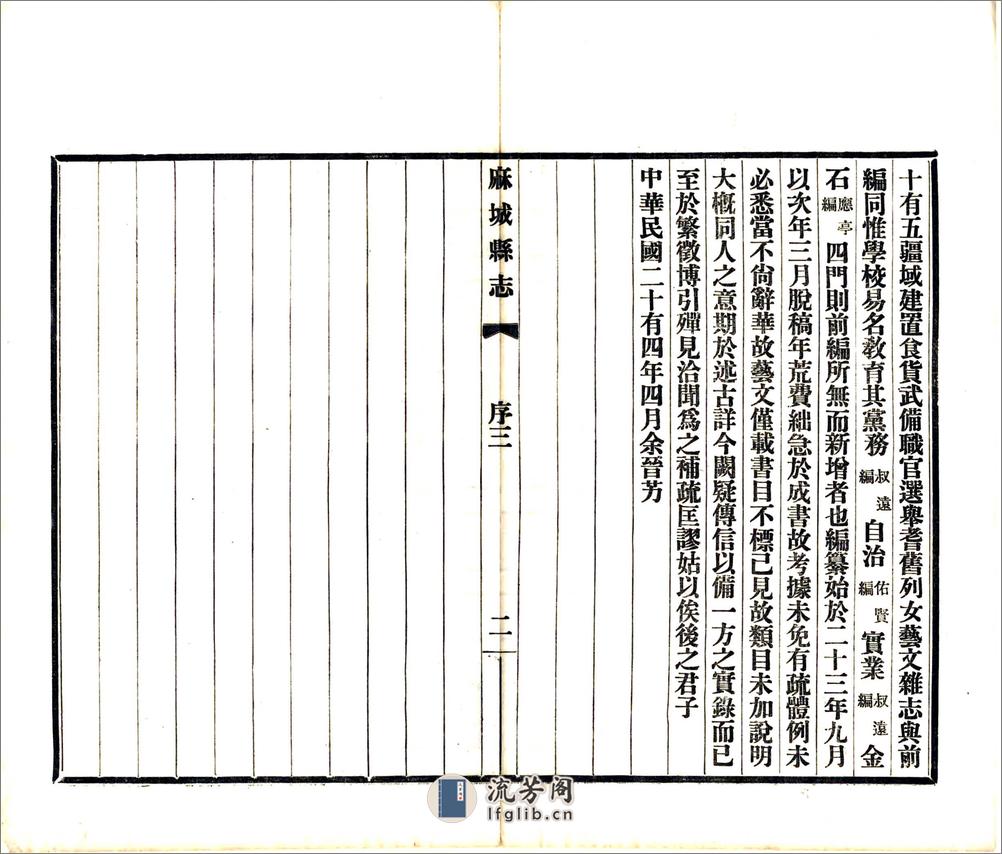 十有五疆域建置食貨武備職官選舉耆舊列女藝文雜志與前
編同惟學校易名教育其黨務叔遠編自治佑賢編實業叔遠編金
石應亭編四門則前編所無而新增者也編纂始於二十三年九月
以次年三月脫稿年荒費絀急於成書故考據未免有疏體例未
必悉當不尙辭華故藝文僅載書目不標己見故類目未加說明
大概同人之意期於述古詳今闕疑傳信以備一方之實錄而已
至於繁徵博引殫見洽聞爲之補疏匡謬姑以俟後之君子
中華民國二十有四年四月余晉芳
麻城縣志 序三 二
流芳阁
lfglib.cn